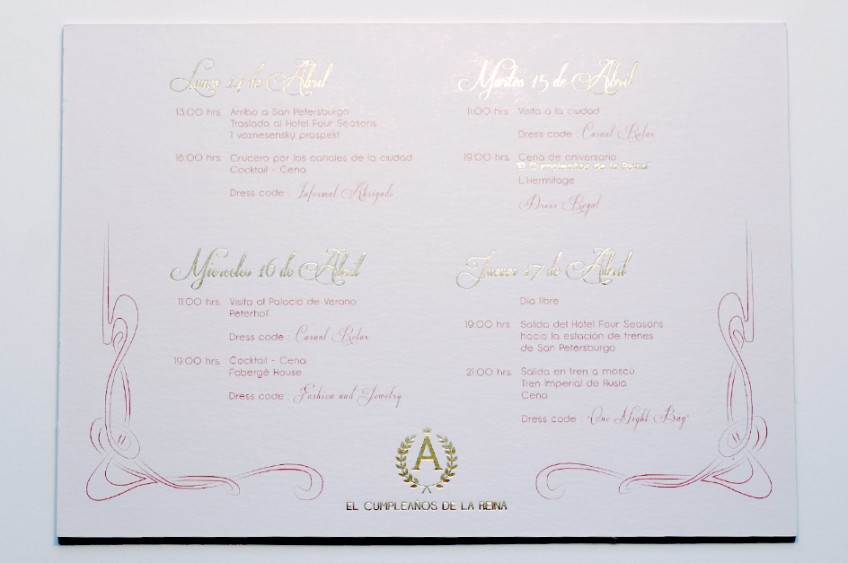 Lunes 14 de Abril
13:00 hrs. Arribo a San Petersburgo
Traslado al Hotel Four Seasons,
1 voznesensky prospekt
18:00 hrs. Crucero por los canales de la ciudad
Cocktail - Cena
Dress code : Informal Abrigado
Martes 15 de Abril
11:00 hrs. Visita a la ciudad
Dress code : Casual Relax
19:00 hrs. Cena de aniversario
"El Cumpleaños de la Reina"
L'Hermitage
Dress Regal
Miercoles 16 de Abril
11:00 hrs. Visita al Palacio de Verano
Peterhof
Dress code : Casual Relax
19:00 hrs. Cocktail - Cena
Fabergé House
Dress code : Fashion and Jewelry
Jueves 17 de Abril
Dia libre
19:00 hrs. Salida del Hotel Four Seasons
hacia la estación de trenes
de San Petersburgo
21:00 hrs. Salida en tren a moscú
Tren Imperial de Rusia
Cena
Dress code : "One Night Bag"
A
EL CUMPLEAÑOS DE LA REINA